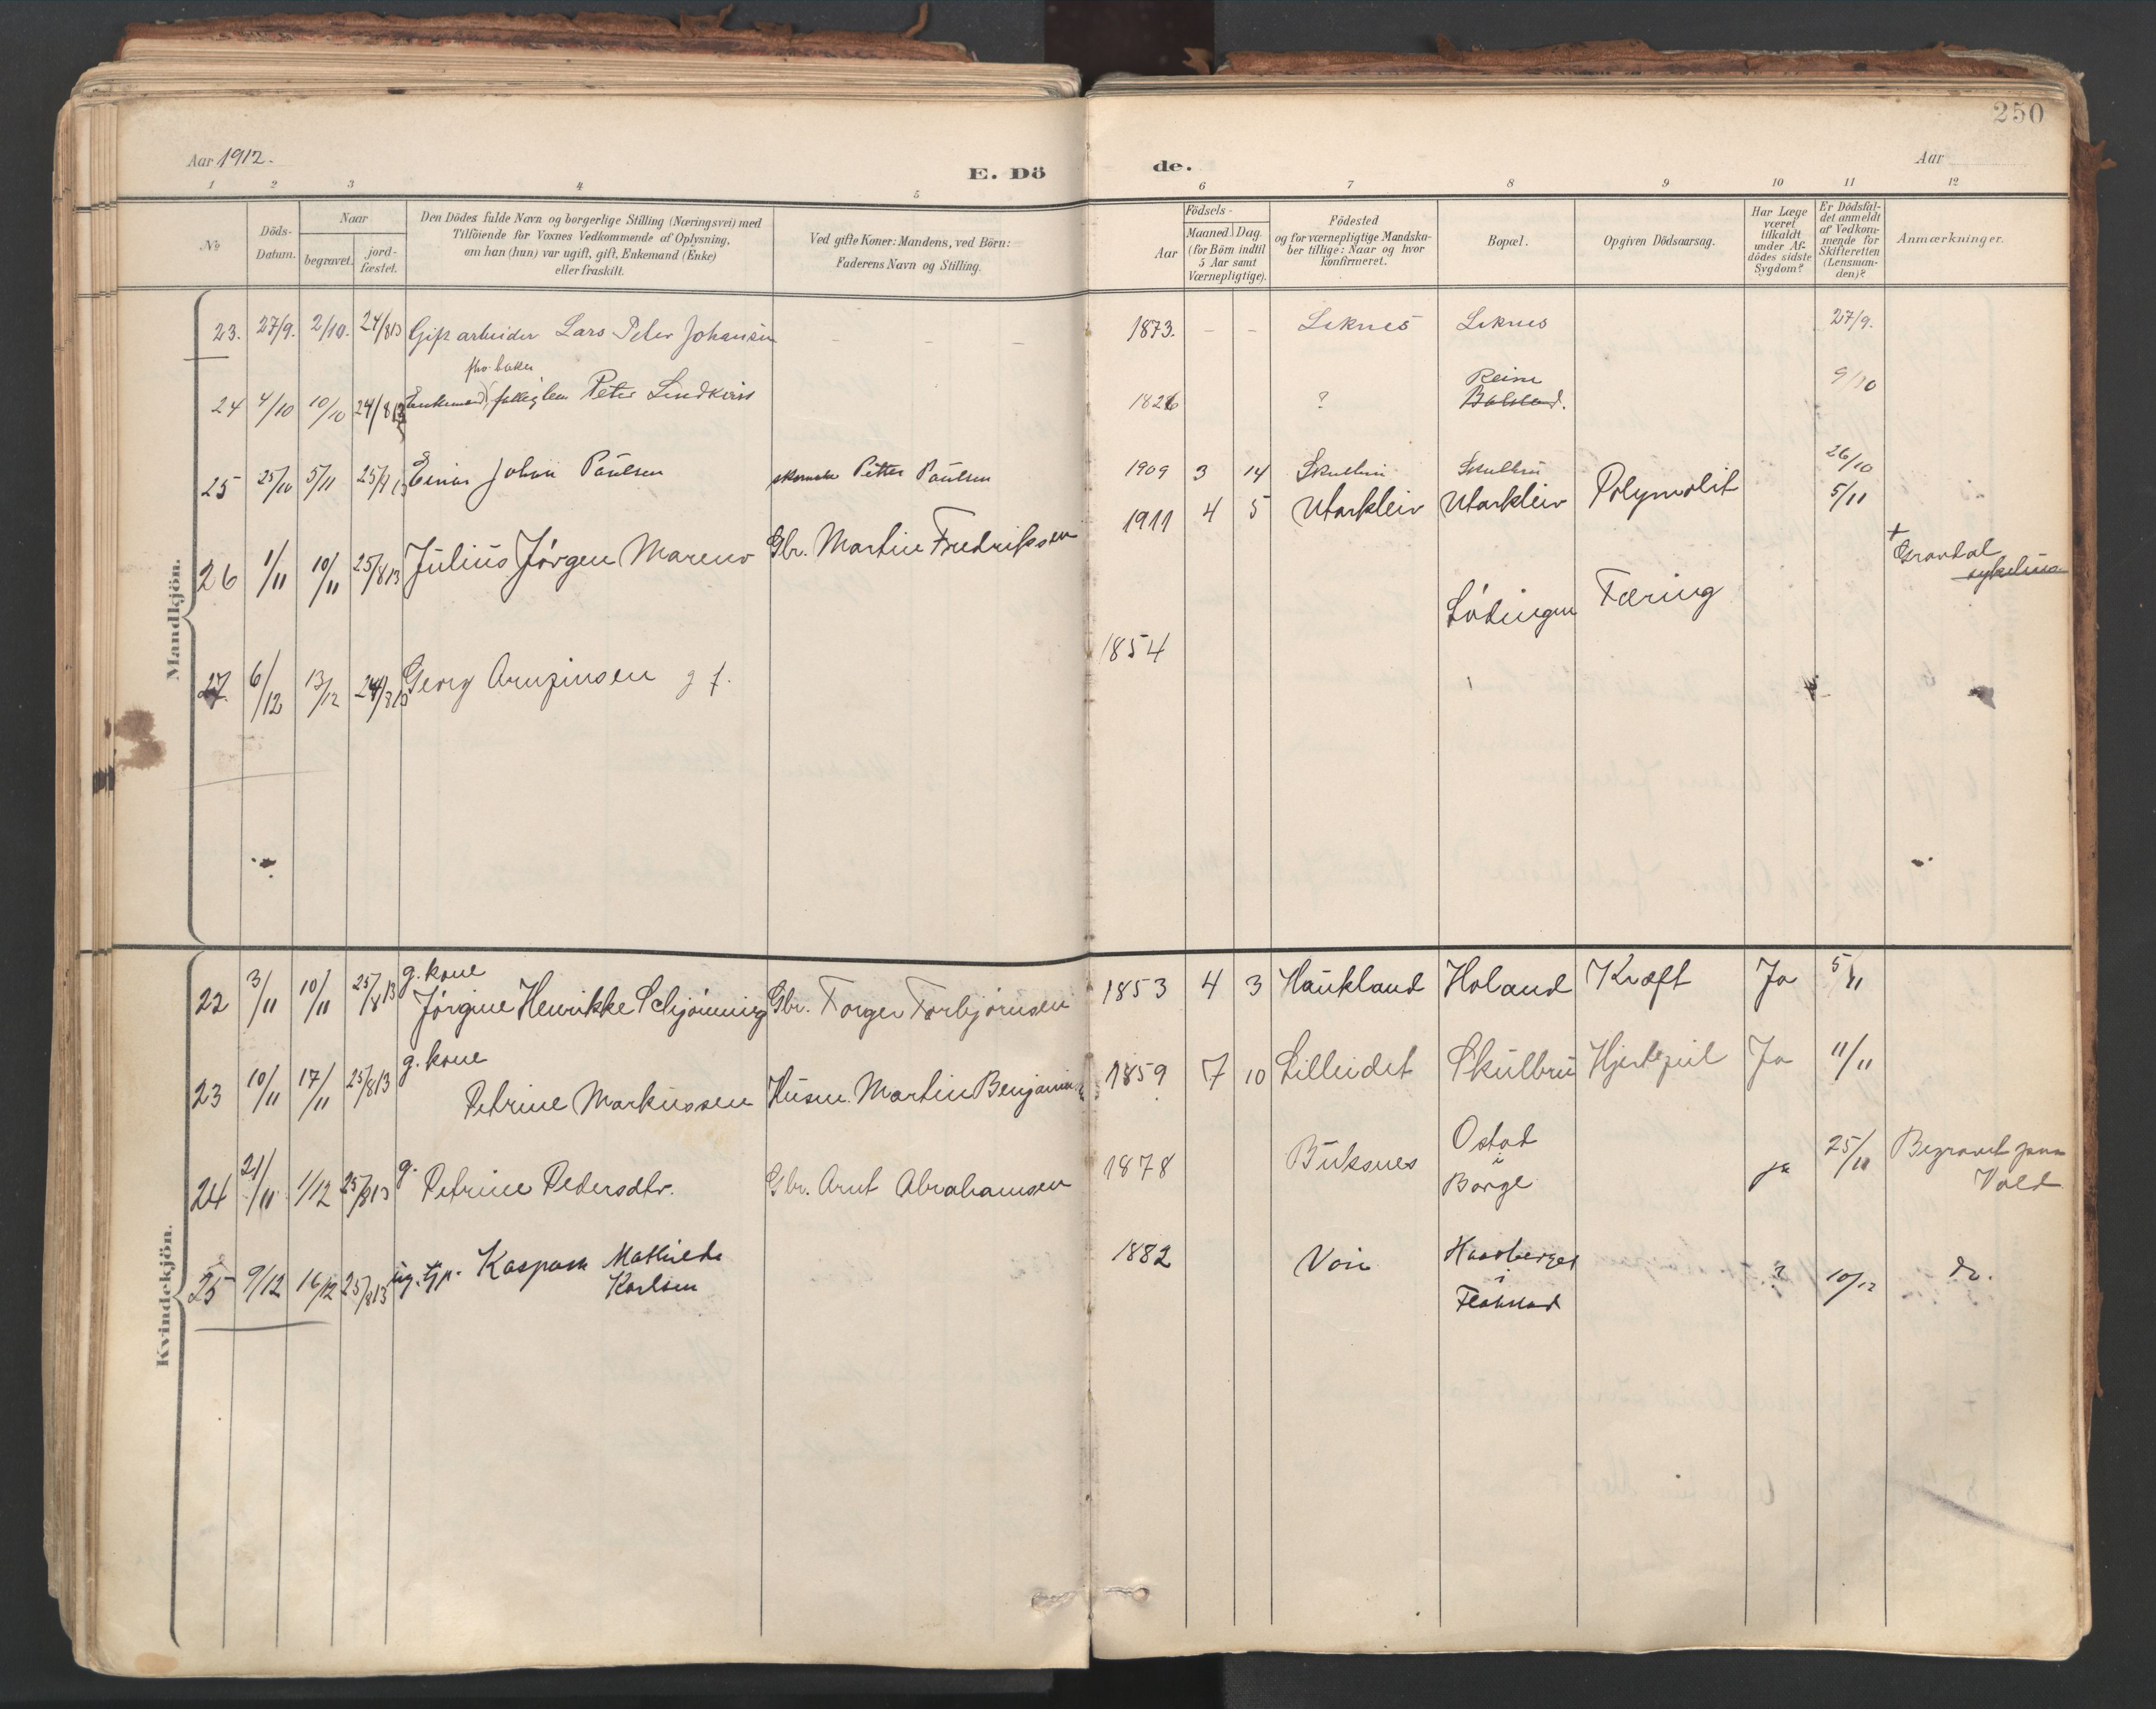 250
Aar 1912.
E. Dö
de.
Aar
1 2 3 4 5 6 7 8 9 10 11 12
No
Döds-
Datum.
Naar
begravet.
jord-
fæstet.
Den Dödes fulde Navn og borgerlige Stilling (Næringsvei) med
Tilföiende for Voxnes Vedkommende af Oplysning,
om han (hun) var ugift, gift, Enkemand (Enke)
eller fraskilt.
Ved gifte Koner: Mandens, ved Börn:
Faderens Navn og Stilling.
Födsels-
Aar
Maaned. Dag.
(for Börn indtil
5 Aar samt
Værnepligtige).
Födested
og for værnepligtige Mandska-
ber tillige: Naar og hvor
konfirmeret.
Bopæl.
Opgiven Dödsaarsag.
Har Læge
været
tilkaldt
under Af-
dödes sidste
Sygdom?
Er Dödsfal-
det anmeldt
af Vedkom-
mende for
Skifteretten
(Lensman-
den)?
Anmærkninger.
Mandkjön.
23. 27/9. 2/10. 24/8 13 Gift arbeider Lars Peter Johansen - - - 1873. - - Leknes Leknes 27/9.
24 4/10 10/10 24/8 13 Enkemand Peter Lindkvist 1826 ? Reine 9/10
Balstad.
25 25/10 5/11 Einar Johan Paulsen Petter Paulsen 1909 3 14 Skulbru Skulbru 26/10
26 1/11 10/11 25/8 13 Julius Jörgen Mareno Gbr. Martin Fredriksen 1911 4 5 Utarkleiv Utarkleiv Polymolit 5/11
27 6/12 13/12 24/8 13 Georg Arnzinsen g f. 1854 Lödingen Tæring + Gravdal
Kvindekjön.
22 3/11 10/11 25/8 13 g. kone
Jörgine Henrikke Schjönning Gbr. Torger Torbjörnsen 1853 4 3 Haukland Holand Kræft Ja 5/11
23 10/11 17/11 25/8 13 g. kone
Petrine Markussen Husm. Martin Benjamins 1859 7 10 Lilleidet Skulbru Hjertefeil Ja 11/11
24 21/11 1/12 25/8 13 g. Petrine Pedersdtr. Gbr. Arnt Abrahamsen 1878 Buksnes Ostad
i
Borge ja 25/11 Begravet paa
Vold
25 9/12 16/12 25/8 13 ug. Kaspara Mathilde
Karlsen 1882 Voie
i
Flakstad ? 10/12 do.